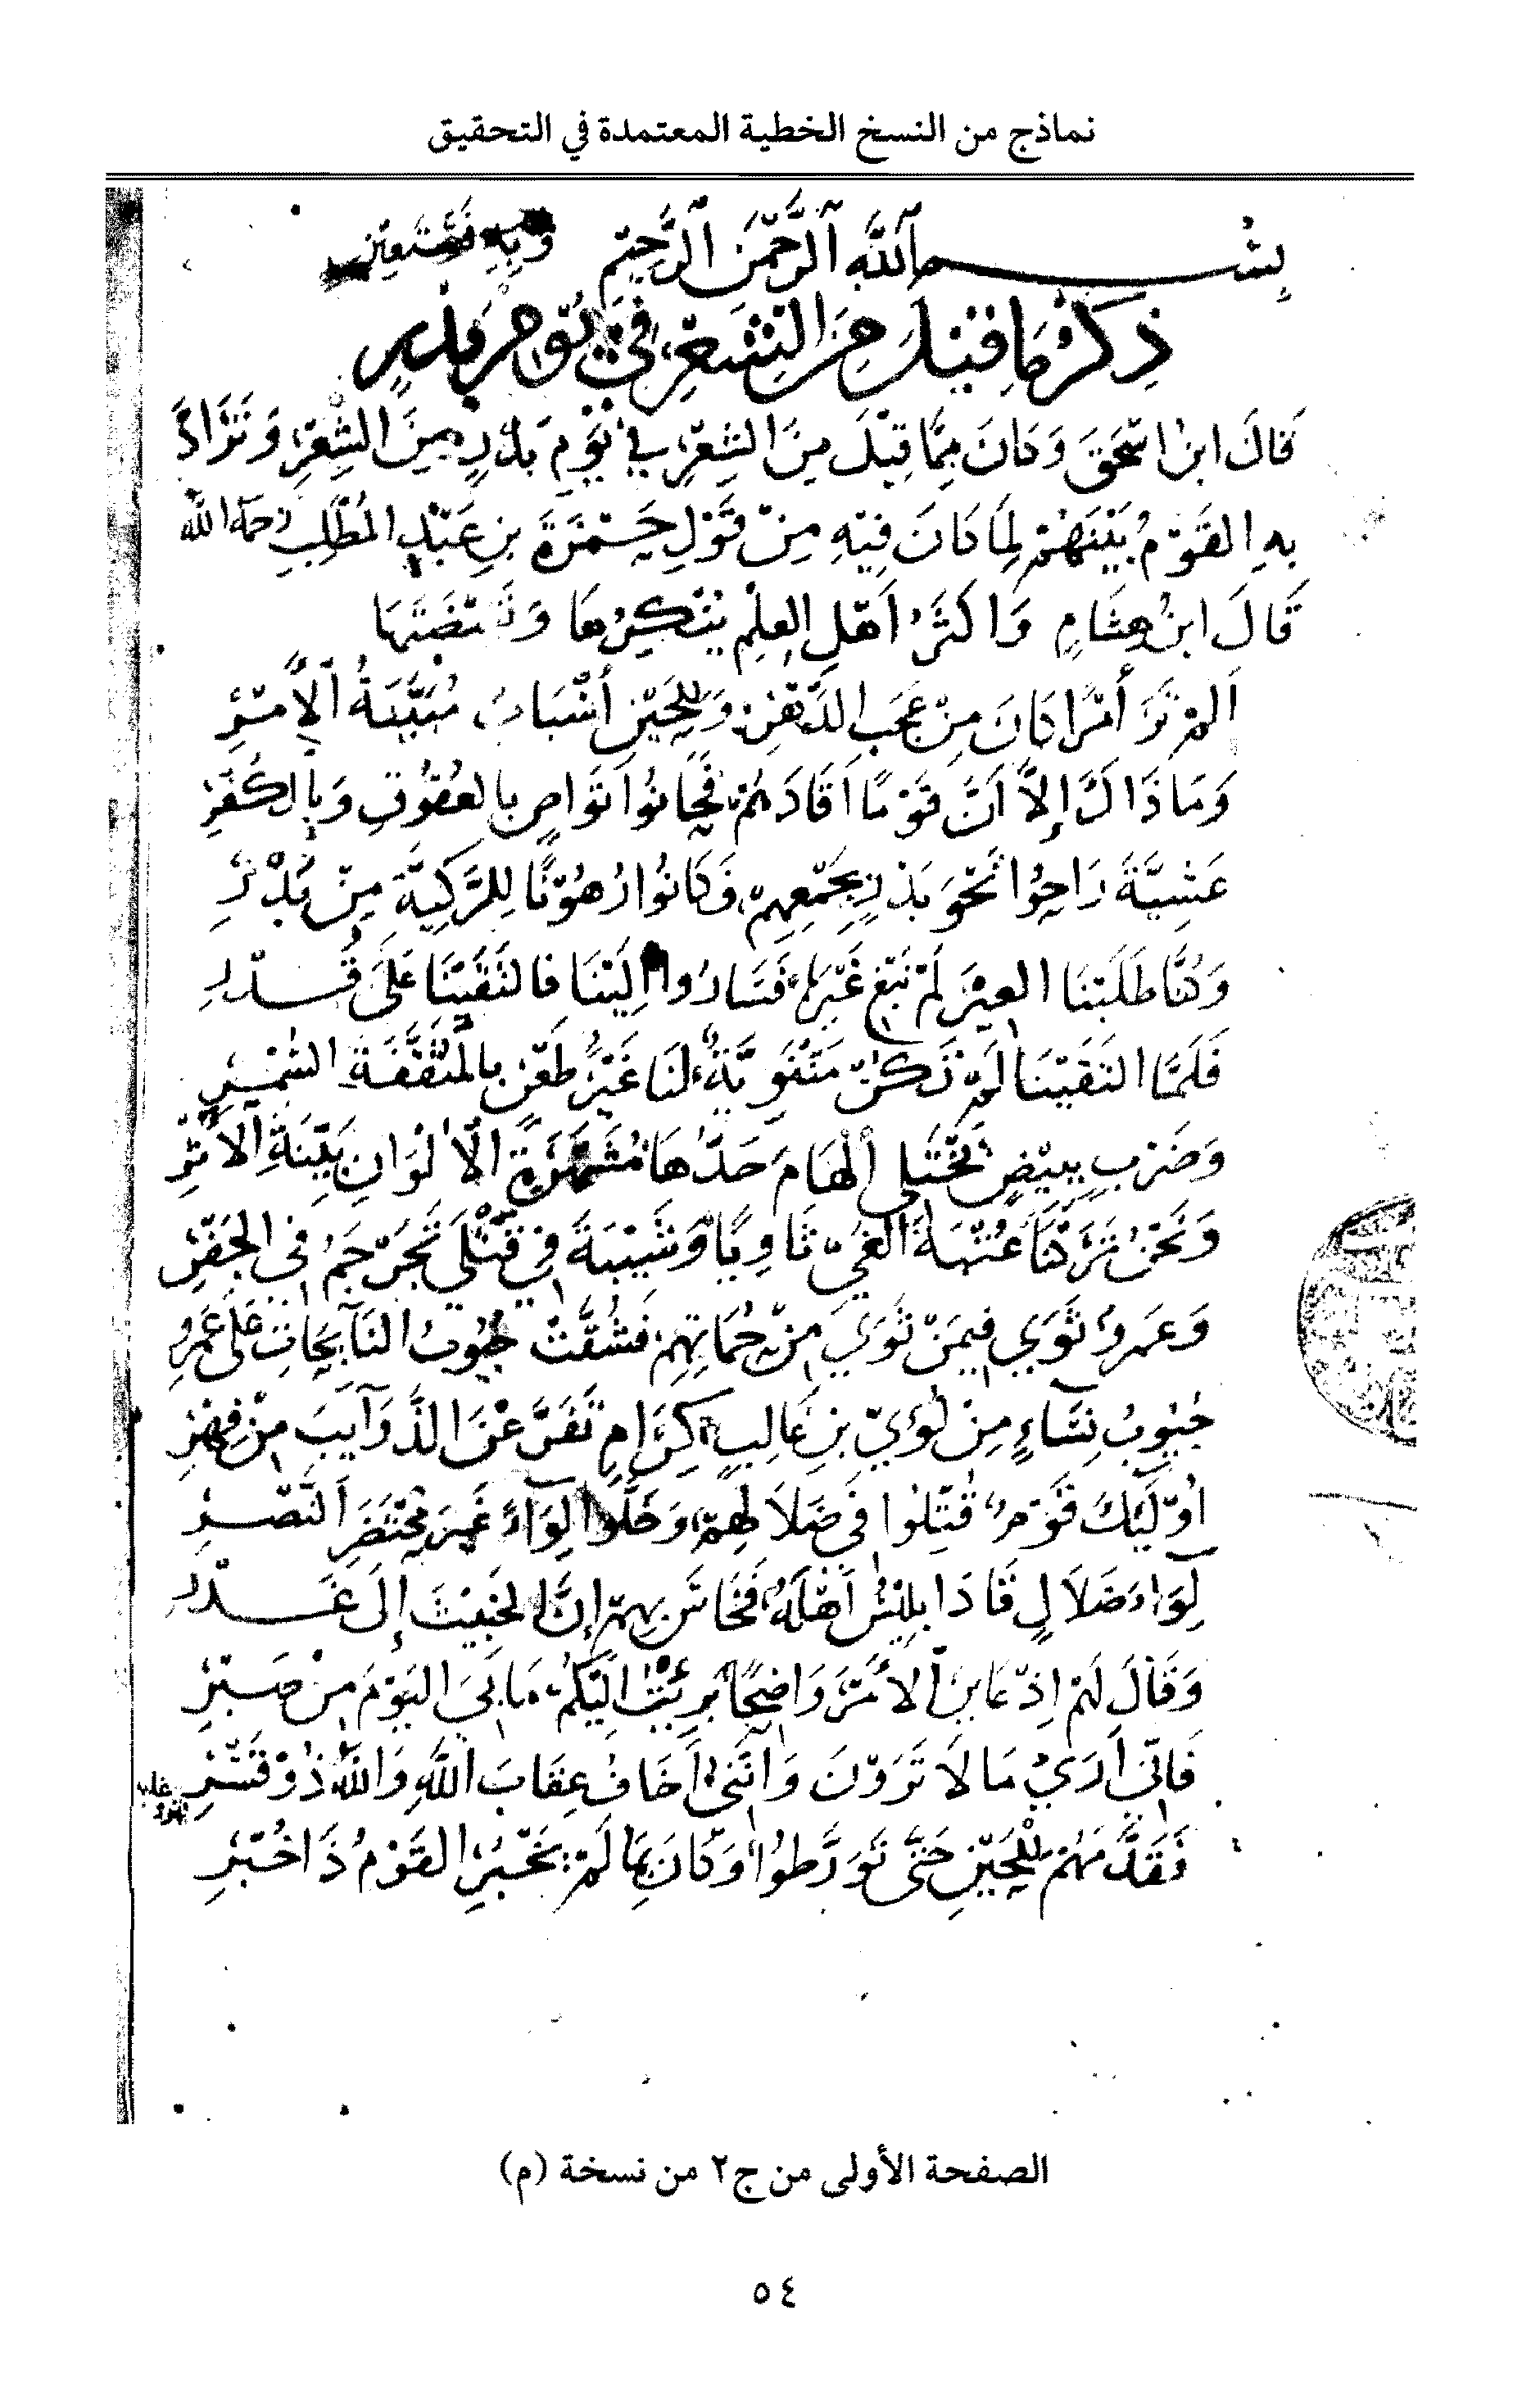 نماذج من النسخ الخطية المعتمدة في التحقيق
بِسْمِ اللَّهِ الرَّحْمَنِ الرَّحِيمِ وَبِهِ نَسْتَعِينُ
ذِكْرُ مَا قِيلَ مِنَ الشِّعْرِ فِي يَوْمِ بَدْرٍ
قَالَ ابنُ اسْحَقَ وَكَانَ مِمَّا قِيْلَ مِنَ الشِّعْرِ فِي يَوْمِ بَدْرٍ مِنَ الشِّعْرِ وَتَرَادَّ
بِهِ القَوْمُ بَيْنَهُمْ لِمَا كَانَ فِيْهِ مِنْ قَوْلِ حَمْزَةَ بنِ عَبْدِ المُطَّلِبِ رحمه الله
قَالَ ابنُ هِشَامٍ وَاكثَرُ اَهْلِ العِلْمِ يُنْكِرُها وَنَقِيْضَتَهَا
اَلَمْ تَرَ أَمْرًا كَانَ مِنْ عَجَبِ الدَّهْرِ وَلِلْحَيْنِ أَسْبَابٌ مُبَيَّنَةُ الأَمْرِ
وَمَا ذَاكَ إِلاَّ اَنَّ قَوْمًا اَفَادَهُمْ فَحَانُوا تَوَاصٍ بِالعُقُوقِ وَبِالكُفْرِ
عَشِيَّةَ رَاحُوا نَحْوَ بَدْرٍ بِجَمْعِهِمْ فَكَانُوا رُهُوْنًا لِلرَّكِيَّةِ مِنْ بَدْرِ
وَكُنَّا طَلَبْنَا العِيْرَ لَمْ نَبْغِ غَيْرَهَا فَسَارُوا اِلَيْنَا فالتَقَيْنَا عَلَى قَدْرِ
فَلَمَّا التَقَيْنَا لَمْ تَكُنْ مَثْنَوِيَّةٌ لَنَا غَيْرُ طَعْنٍ بِالمُثَقَّفَةِ السُّمْرِ
وَضَرْبٍ بِبِيْضٍ يَخْتَلِي الهَامَ حَدُّهَا مُشَهَّرَةِ الأَلْوَانِ بَيِّنَةِ الأُثْرِ
وَنَحْنُ تَرَكْنَا عُتْبَةَ الغَيِّ ثَاوِيًا وَشَيْبَةَ فِي قَتْلَى تَجَرْجَمُ فِي الجَفْرِ
وَعَمرٌو ثَوَى فِيمَنْ ثَوَى مِنْ حُمَاتِهِمْ فَشُقَّتْ جُيُوبُ النَّائِحَاتِ عَلَى عَمْرِو
جُيُوبُ نِسَاءٍ مِنْ لُؤَيِّ بنِ غَالِبٍ كِرَامٍ تَفَرَّعْنَ الذَّوَائِبَ مِنْ فِهْرِ
اُوْلَئِكَ قَوْمٌ قُتِّلُوا فِي ضَلاَلِهِمْ وَخَلَّوا لِوَاءً غَيْرَ مُحْتَضَرِ النَّصْرِ
لِوَاءَ ضَلاَلٍ قَادَ ابلِيْسُ اَهْلَهُ فَخَاسَ بِهِمْ إِنَّ الخَبِيْثَ إِلَى غَدْرِ
وَقَالَ لَهُمْ اِذْ عَايَنَ الأَمْرَ وَاضِحًا بَرِئْتُ اِلَيْكُمُ مَا بِيَ اليَوْمَ مِنْ صَبْرِ
فَاِنِّي اَرَى مَا لاَ تَرَوْنَ وَاِنَّنِي اَخَافُ عِقَابَ اللَّهِ وَاللَّهُ ذُوْ قَسْرِ
فَقَدَّمَهُمْ لِلْحَيْنِ حَتَّى تَوَرَّطُوا وَكَانَ بِمَا لَمْ يَخْبُرِ القَوْمُ ذَا خُبْرِ
الصفحة الأولى من ج٢ من نسخة (م)
٥٤